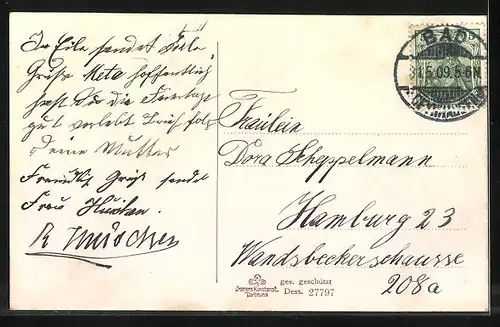 In Eile sendet viele
Grüße Meta hoffentlich
hast Du die Feiertage
gut verlebt Brief folgt
Deine Mutter
Freundl. Gruß sendet
Frau
BAD
31.5.09.5-6N
Fräulein
Dora Scheppelmann
Hamburg 23
Wandsbeckerschaussee
208a
ges. geschützt
Dess. 27797